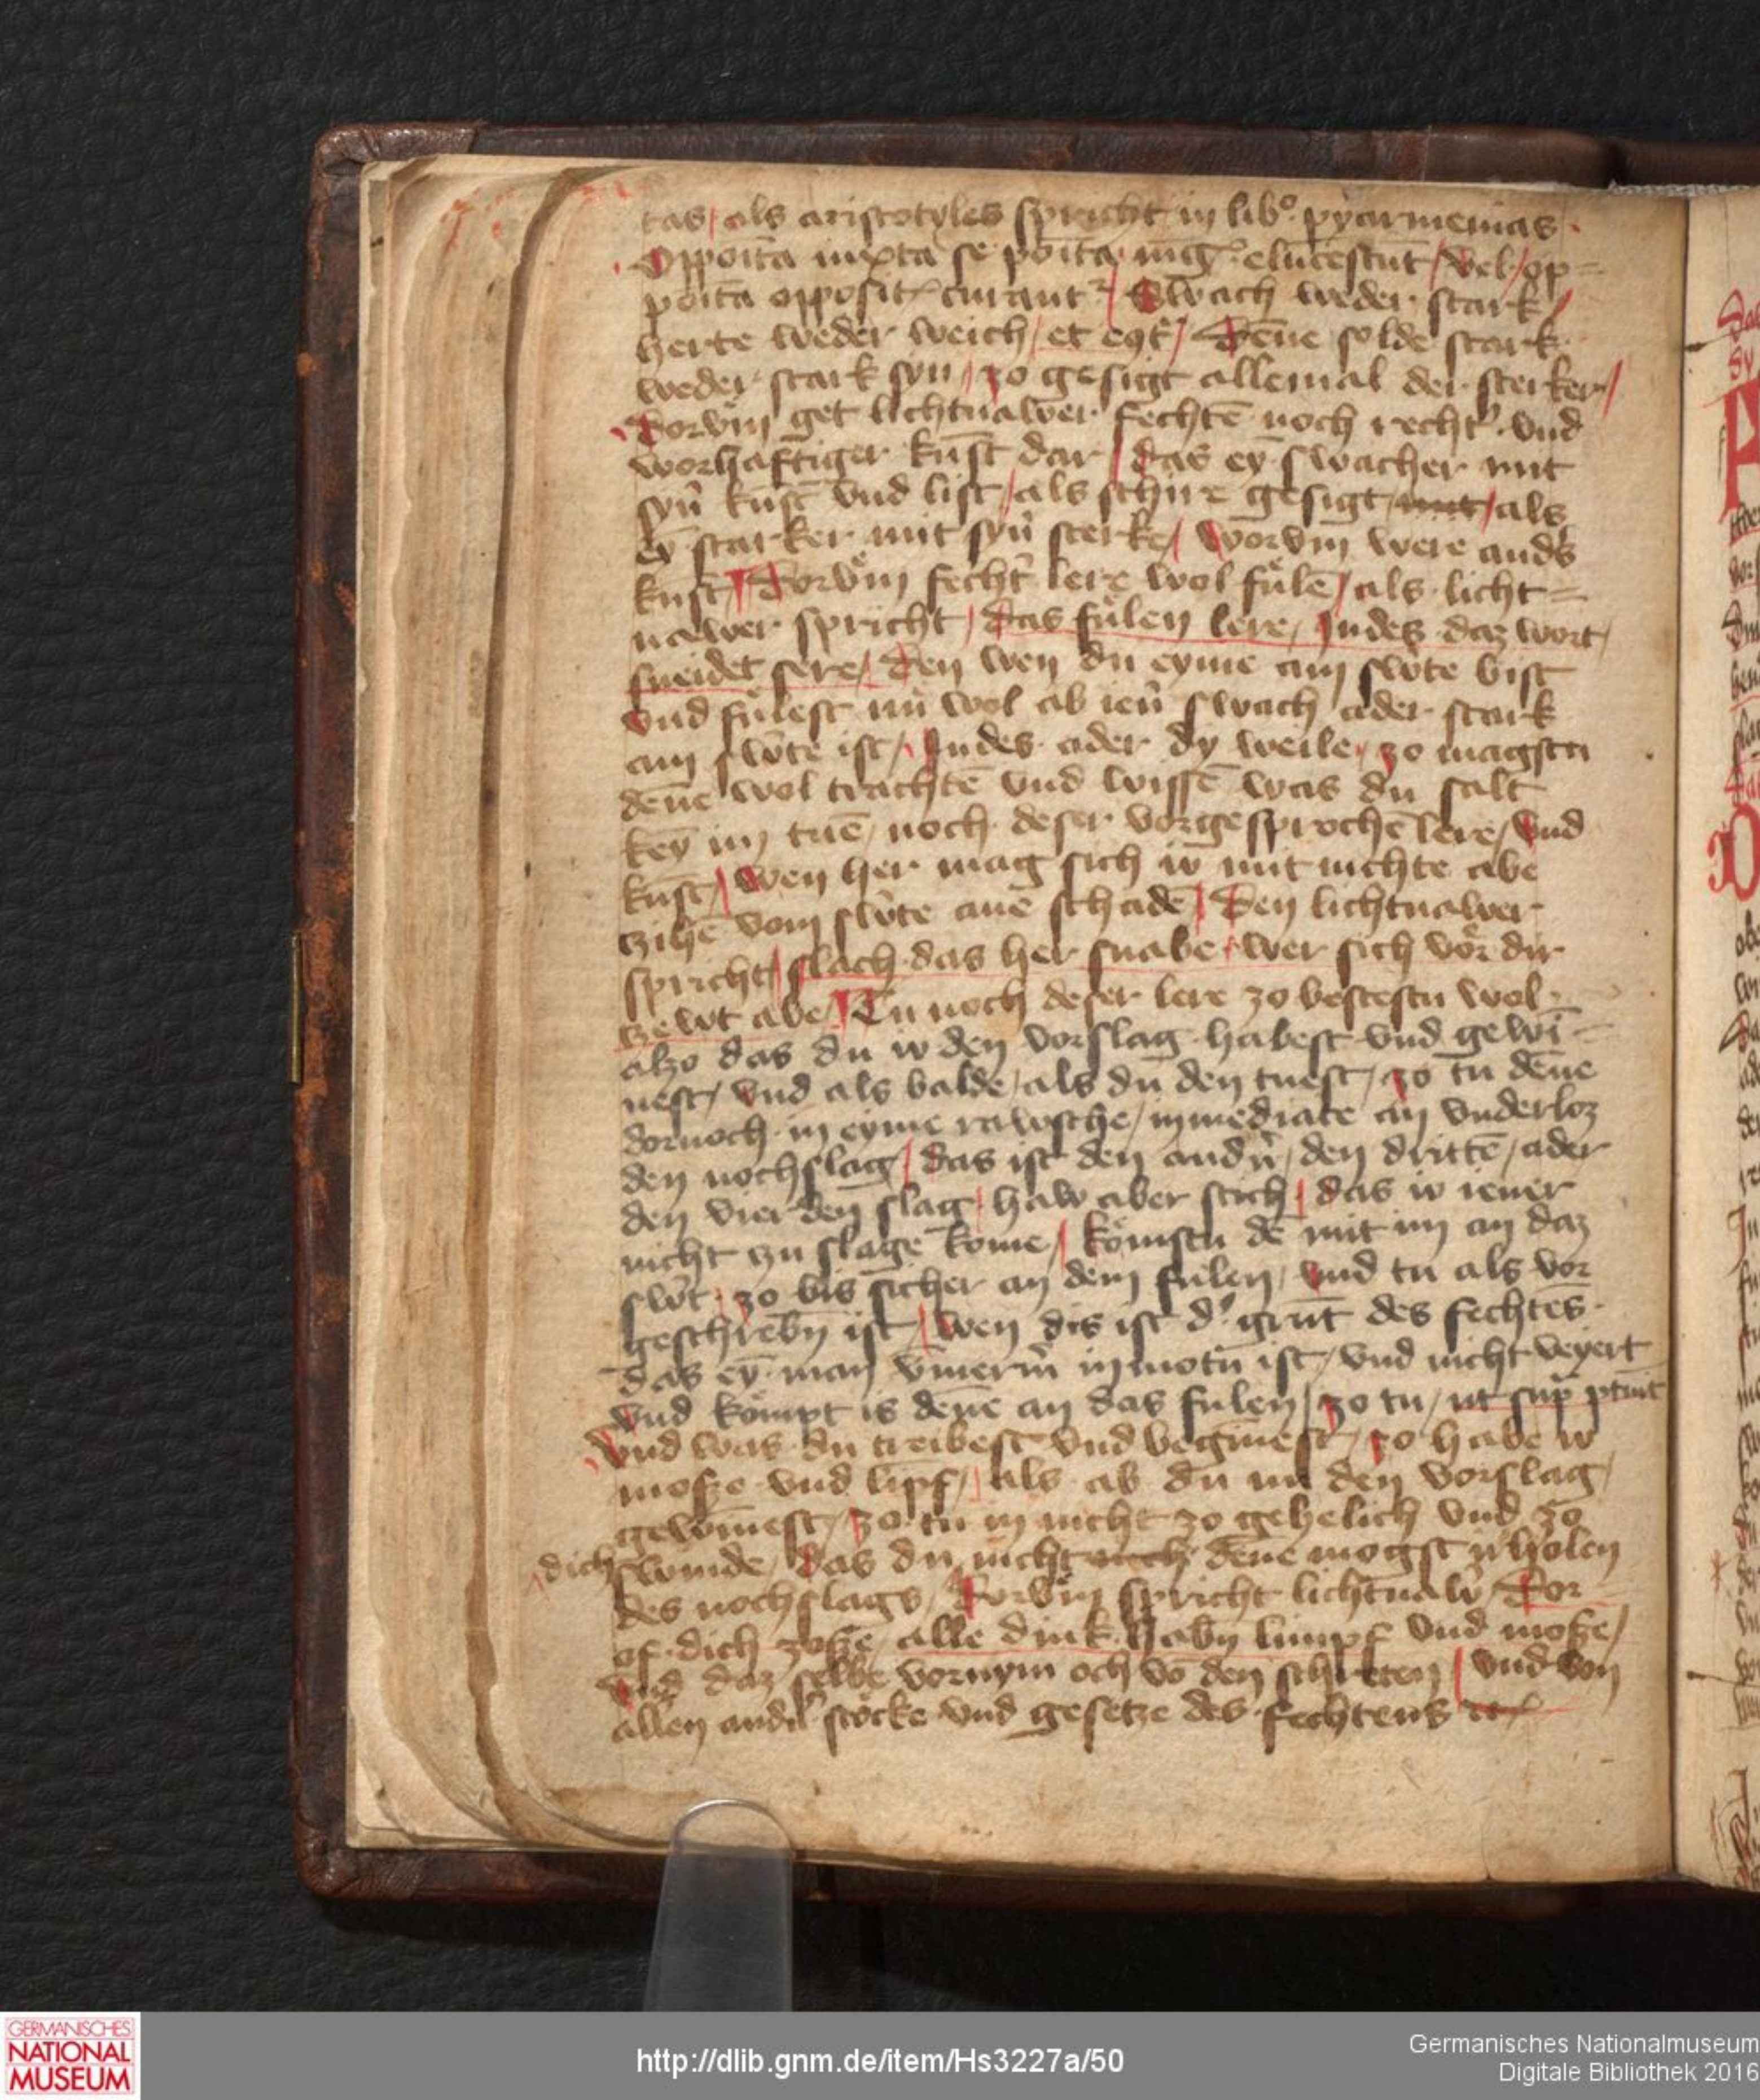 tas / als aristotyles spricht in libº pyarmenias ·
Oppoita iuxta se poita mag elucescut / vel / op=
poita opposit curant / Swach weder stark /
herte weder weich / et eqt / Denne solde stark
weder stark syn / zo gesigt allemal der sterker /
Dorvm get lichtnawer fechte noch rechter vnd
worhaftiger kunst dar / das ey swacher mit
syn kunst vnd list / als schire gesigt mit / als
ey starker mit syn sterke / Worvm were anders
kunst / Dorvm fechter lere wol fulen / als licht=
nawer spricht / das fulen lere / Indes daz wort /
sneidet sere / Den wen du eyme am swte bist
vnd fulest nu wol ab ien swach ader stark
am swte ist / Indes ader dy weile / zo magstu
denne wol trachte vnd wisse was du salt
key im tue / noch deser vorgesproche lere / vnd
kunst / Wen her mag sich io mit nichte abe
czihe vom swte ane schade / Den lichtnawer
spricht / slach das her snabe / wer sich vor dir
zewt abe / Tu noch deser lere zo bestestu wol
alzo das du io den vorslag habest vnd gewi=
nest / vnd als balde / als du den tuest / zo tu denne
dornoch in eyme rawsche / inmediate an vnderloz
den nochslag / das ist den andn / den dritte / ader
den vierden slag / haw aber stich / das io iener
nicht zu slage kome / komstu de mit im an daz
swt / zo bis sicher an dem fulen / vnd tu als vor
geschrebn ist / Wen dis ist d' grut des fechtes ·
das ey man vmerm in motu ist / vnd nicht veyert
vnd kompt is denne an das fulen / zo tu / ut sup ptuit
Vnd was du treibest vnd begynnest / zo habe io
mosze vnd limpf / als ab du im den vorslag /
gewinnest / zo tu in nicht zo gehelich vnd zo
dich swinde / das du nicht noch denne mogst irholen
des nochslags / Dorvm spricht lichtnaw / Dor=
of dich zosze / alle dink habn limpf vnd mosze /
Vnd daz selbe vornym och vo den schreten / vnd von
allen andn stocke vnd gesetze des fechtens etc
GERMANISCHES
NATIONAL
MUSEUM
http://dlib.gnm.de/item/Hs3227a/50
Germanisches Nationalmuseum
Digitale Bibliothek 2016